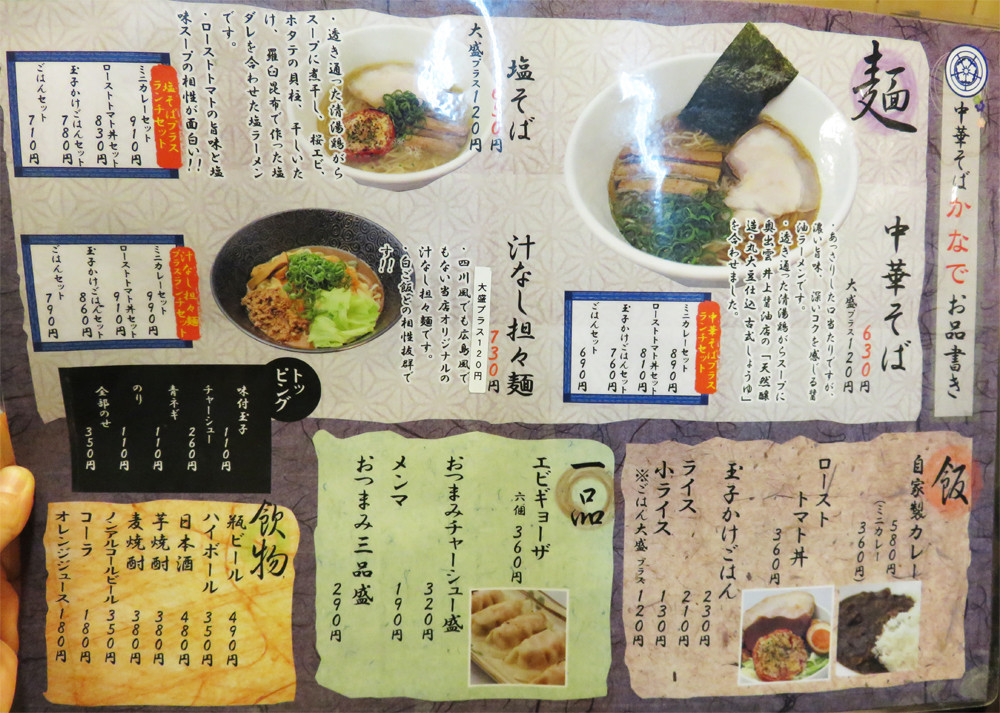 中華そばかなでお品書き
麺
中華そば
630円
大盛プラス120円
・あっさりした口当たりですが、
濃い旨味、深いコクを感じる醤
油ラーメンです。
・透き通った清湯鶏がらスープに
奥出雲井上醤油店の「天然醸
造・丸大豆仕込 古式しょうゆ」
を合わせました。
中華そばプラス
ランチセット
ミニカレーセット
890円
ローストトマト丼セット
810円
玉子かけごはんセット
760円
ごはんセット
690円
塩そば
大盛プラス120円
・透き通った清湯鶏がら
スープに煮干し、桜エビ、
ホタテの貝柱、干しいた
け、羅臼昆布で作った塩
ダレを合わせた塩ラーメン
です。
・ローストトマトの旨味と塩
味スープの相性が面白い!!
塩そばプラス
ランチセット
ミニカレーセット
910円
ローストトマト丼セット
830円
玉子かけごはんセット
780円
ごはんセット
710円
汁なし担々麺
730円
大盛プラス120円
・四川風でも広島風で
もない当店オリジナルの
汁なし担々麺です。
・白ご飯との相性抜群で
す!!
汁なし担々麺
プラスランチセット
ミニカレーセット
990円
ローストトマト丼セット
910円
玉子かけごはんセット
860円
ごはんセット
790円
トッピング
味付玉子
110円
チャーシュー
260円
青ネギ
110円
のり
110円
全部のせ
350円
飯
自家製カレー
580円
(ミニカレー
360円)
ロースト
トマト丼
360円
玉子かけごはん
230円
ライス
210円
小ライス
130円
※ごはん大盛プラス120円
一品
エビギョーザ
六個 360円
おつまみチャーシュー盛
320円
メンマ
190円
おつまみ三品盛
290円
飲物
瓶ビール 490円
ハイボール 350円
日本酒 480円
芋焼酎 380円
麦焼酎 380円
ノンアルコールビール 350円
コーラ 180円
オレンジジュース 180円